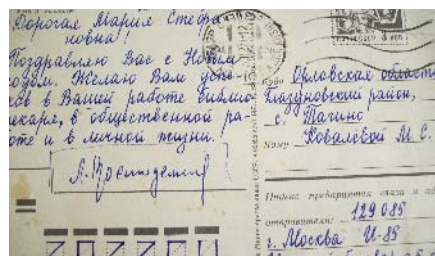 Дорогая Мария Стефа
новна!
Поздравляю Вас с Новым
годом. Желаю Вам успе-
хов в Вашей работе библио
текаря, в общественной ра-
боте и в личной жизни.
Куда Орловская область
Глазуновский район,
с. Тагино
Кому Ковалёвой М. С.
Индекс предприятия связи и
отправителя:
129085
г. Москва И-85